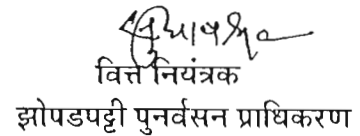 वित्त नियंत्रक
झोपडपट्टी पुनर्वसन प्राधिकरण